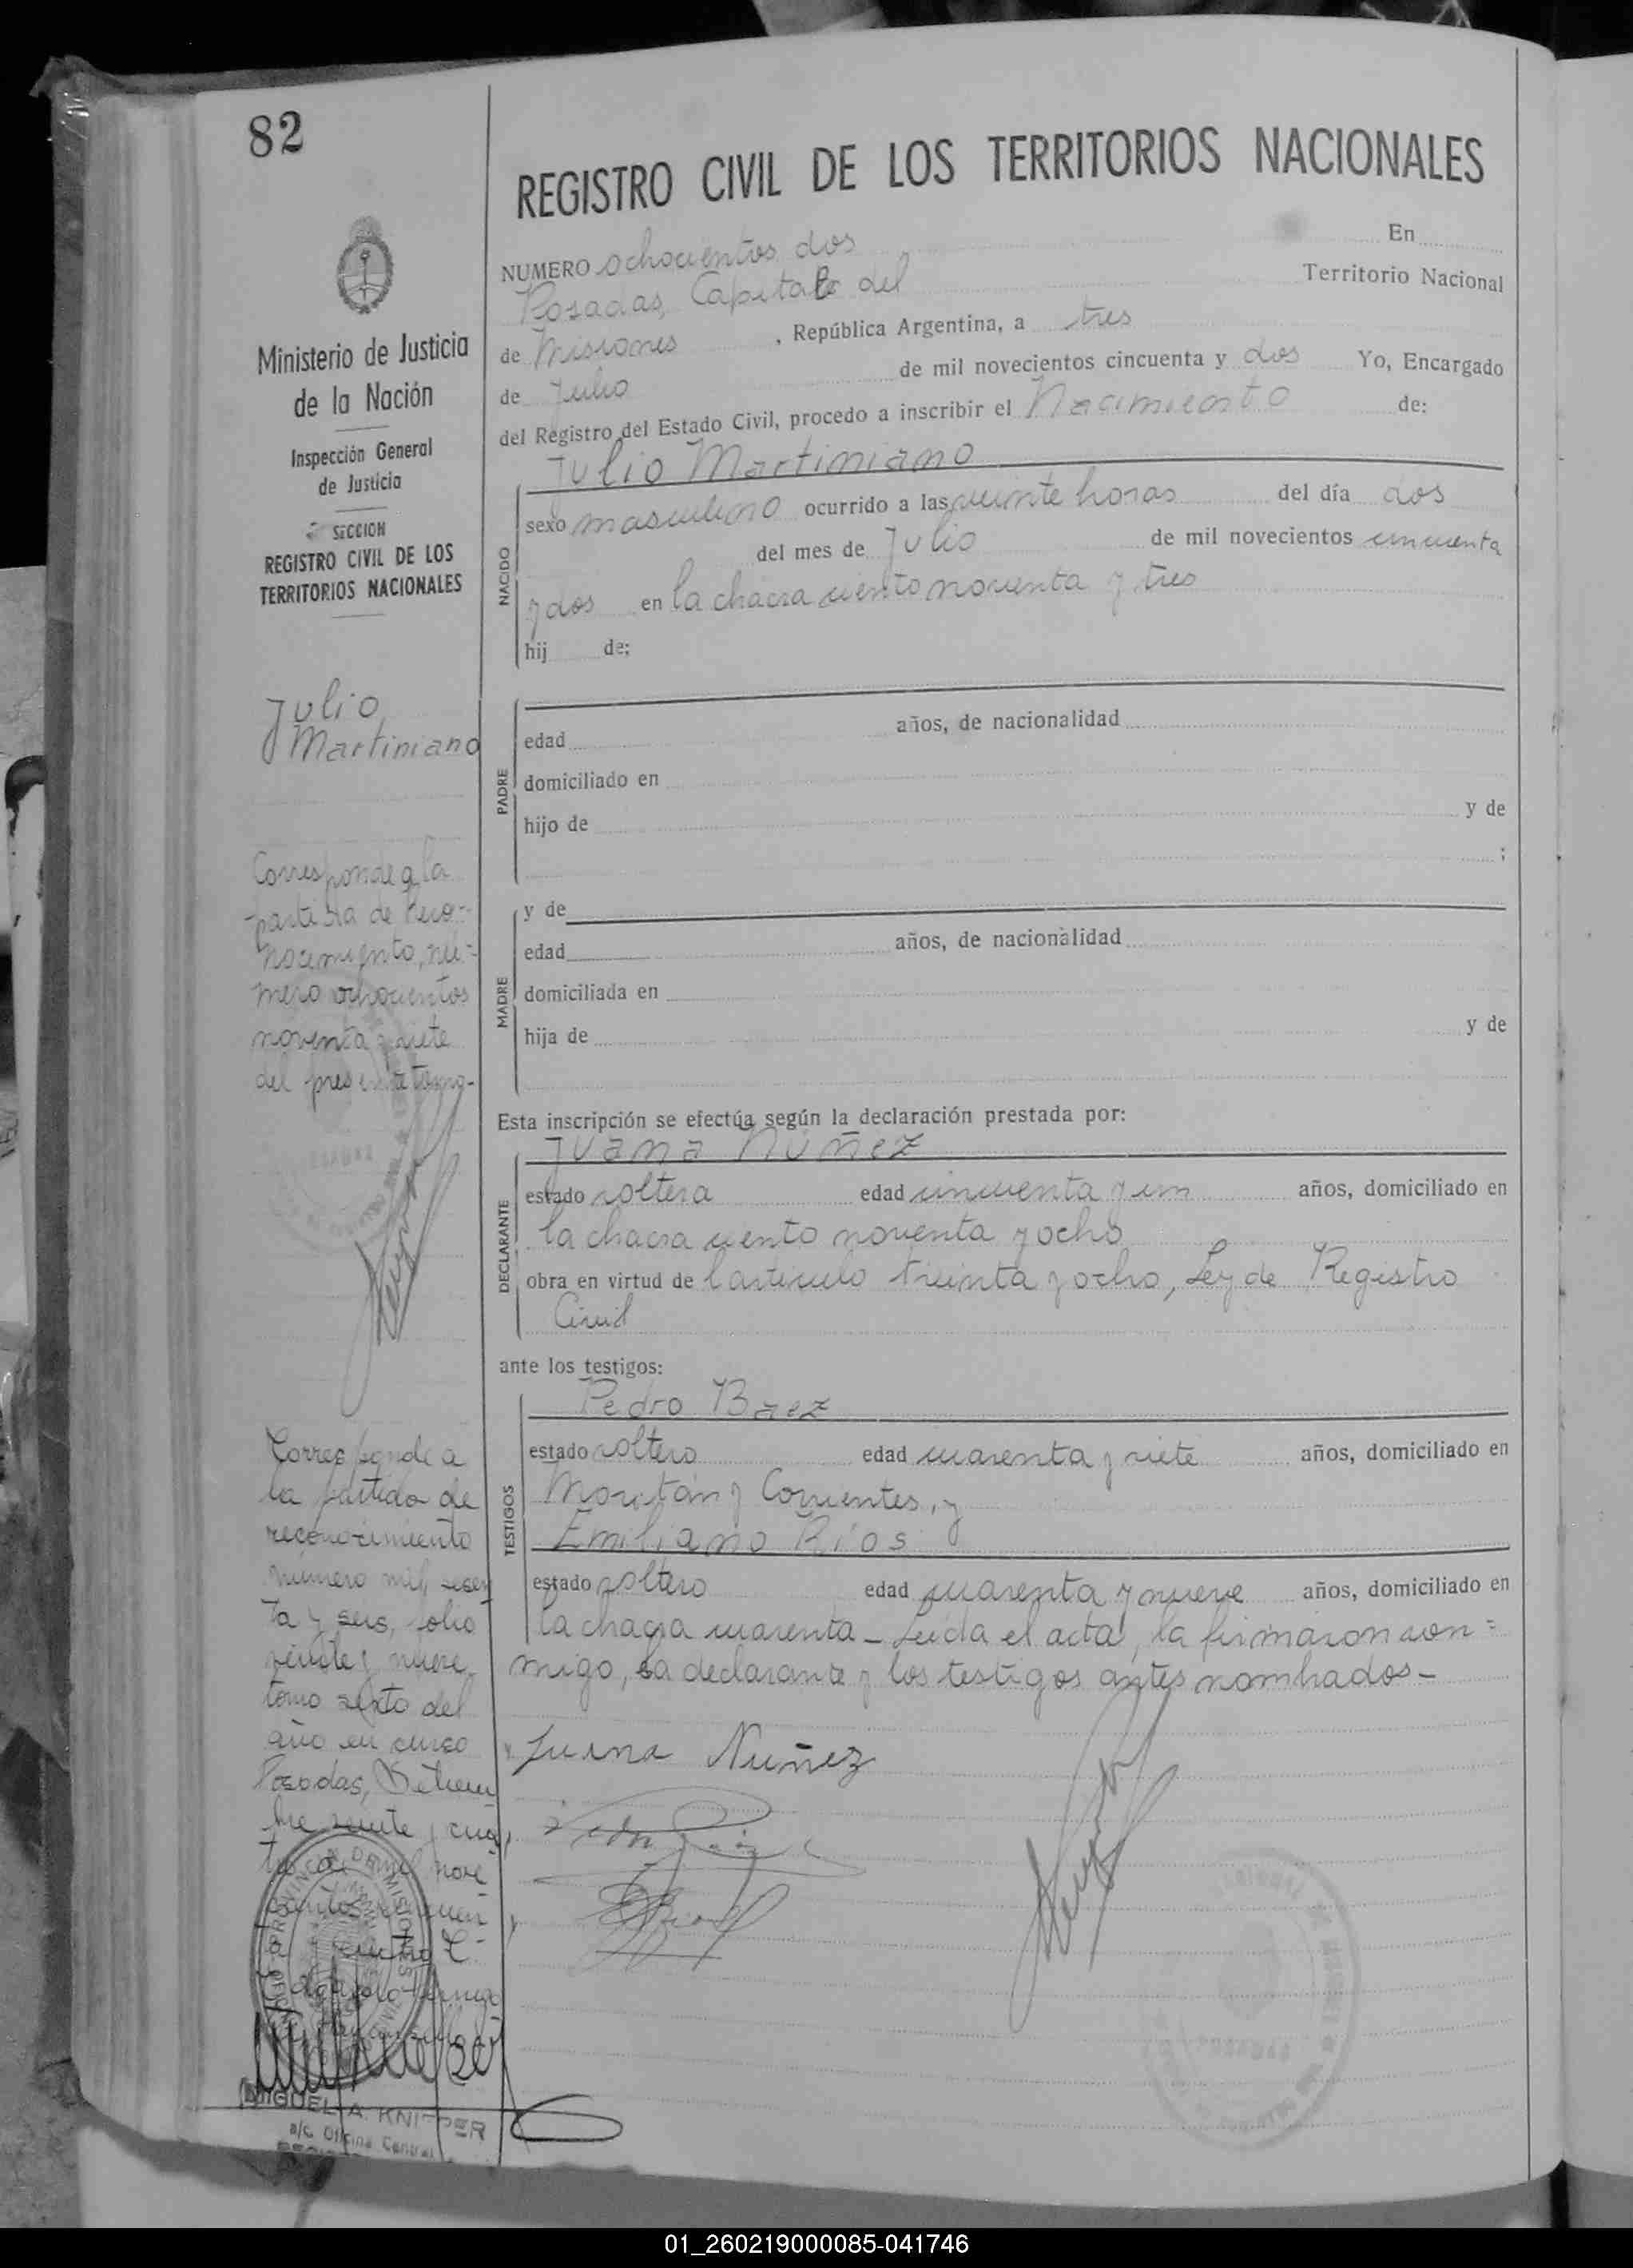 82
REGISTRO CIVIL DE LOS TERRITORIOS NACIONALES
Ministerio de Justicia
de la Nación
Inspección General
de Justicia
SECCION
REGISTRO CIVIL DE LOS
TERRITORIOS NACIONALES
Julio
Martiniano
Corresponde a la
partida de reco-
nocimiento, nú-
mero ochocientos
noventa y siete
del presente tomo-
Corresponde a
la partida de
reconocimiento
número mil sesen
ta y seis, folio
veinte y nueve,
tomo sexto del
año en curso
Posadas, Setiem
bre veinte y cua
tro de mil nove
MIGUEL A. KNIPPER
a/c Oficina Central
NUMERO ochocientos dos En
Posadas, Capital del Territorio Nacional
de Misiones , República Argentina, a tres
de Julio de mil novecientos cincuenta y dos Yo, Encargado
del Registro del Estado Civil, procedo a inscribir el Nacimiento de:
Julio Martiniano
NACIDO
sexo masculino ocurrido a las veinte horas del día dos
del mes de Julio de mil novecientos cincuenta
y dos en la chacra ciento noventa y tres
hij de:
PADRE
edad años, de nacionalidad
domiciliado en
hijo de y de
;
MADRE
y de
edad años, de nacionalidad
domiciliada en
hija de y de
Esta inscripción se efectúa según la declaración prestada por:
Juana Núñez
DECLARANTE
estado soltera edad cincuenta y un años, domiciliado en
la chacra ciento noventa y ocho
obra en virtud de l artículo treinta y ocho, Ley de Registro
Civil
ante los testigos:
Pedro Baez
TESTIGOS
estado soltero edad cuarenta y siete años, domiciliado en
Moritán y Corrientes, y
Emiliano Ríos
estado soltero edad cuarenta y nueve años, domiciliado en
la chacra cuarenta - Leída el acta, la firmaron con=
migo, la declarante y los testigos antes nombrados-
Juana Nuñez
01_260219000085-041746